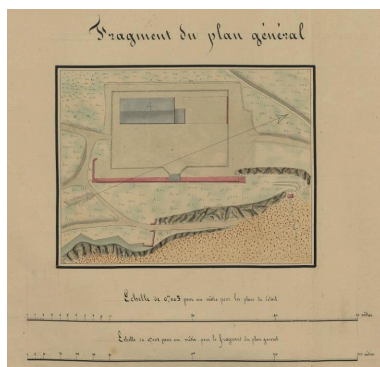 Fragment du plan général
Echelle de 0,005 pour un mètre pour les plans de détail
mètres
Echelle de pour un mètre pour le fragment du plan général
mètres